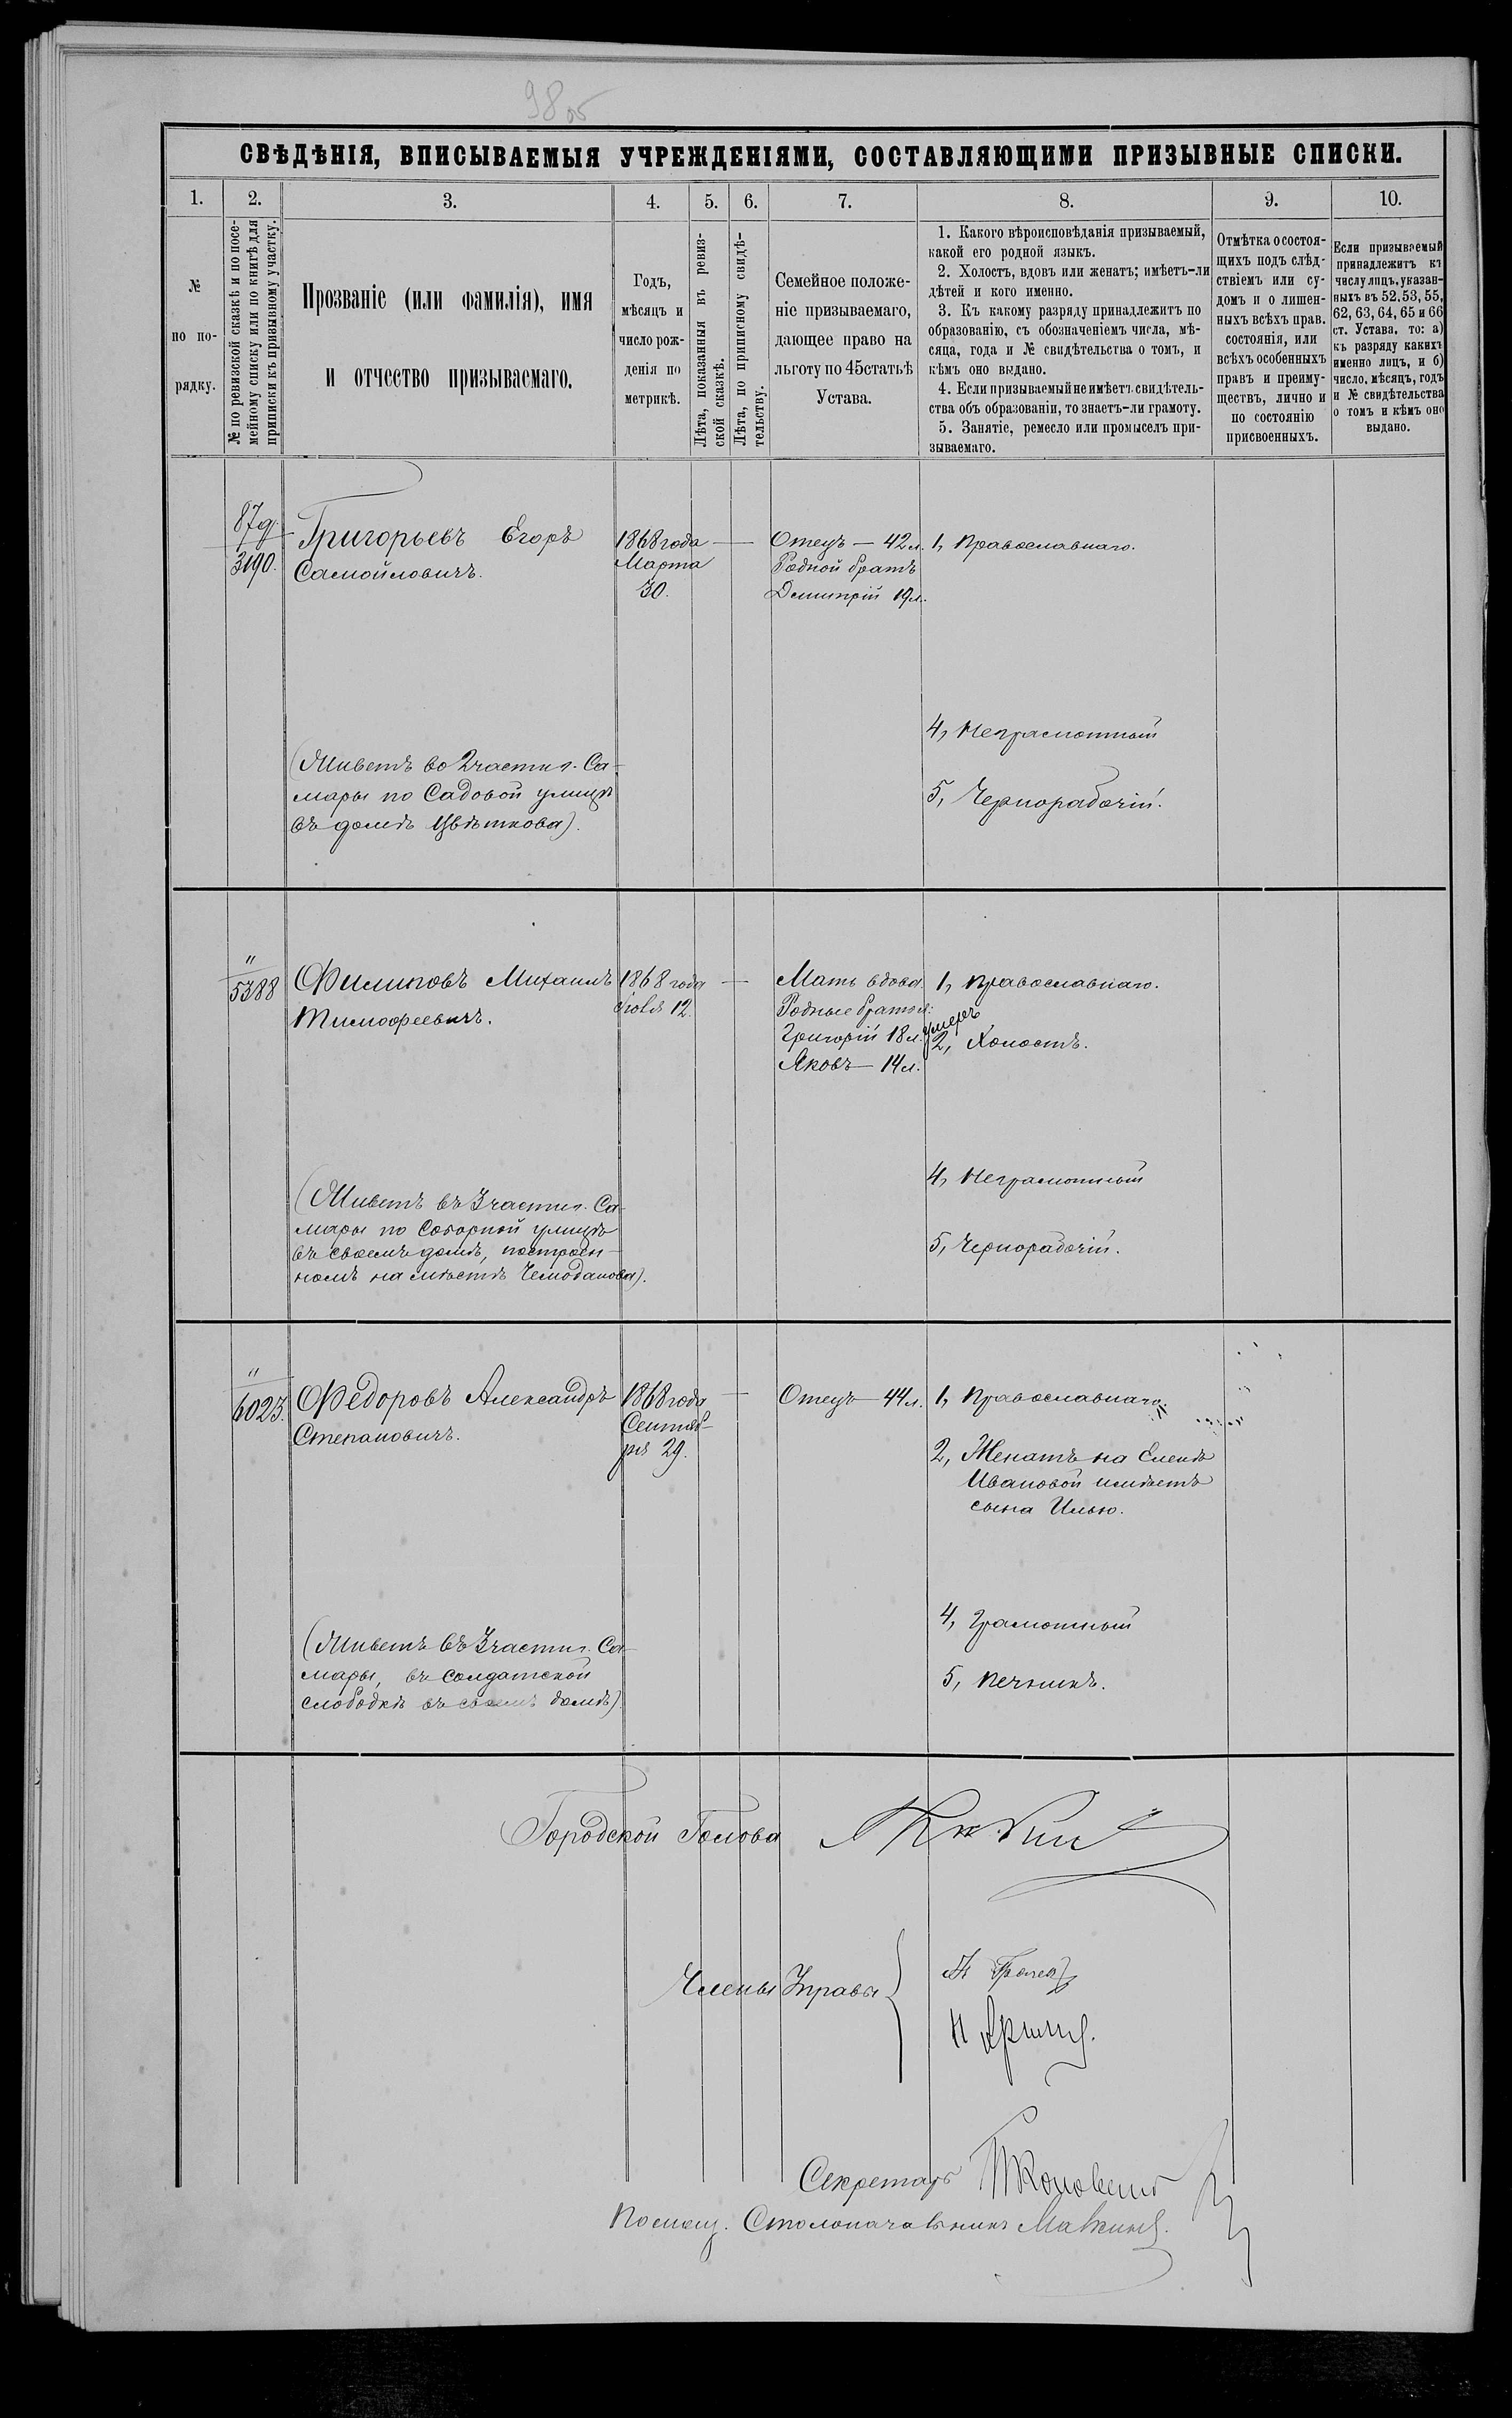 98 об
СВѢДѢНІЯ, ВПИСЫВАЕМЫЯ УЧРЕЖДЕНІЯМИ, СОСТАВЛЯЮЩИМИ ПРИЗЫВНЫЕ СПИСКИ.
1. 2. 3. 4. 5. 6. 7. 8. 9. 10.
№
по по-
рядку.
№ по ревизской сказкѣ и по посе-
мейному списку или по книгѣ для
приписки къ призывному участку.
Прозваніе (или фамилія), имя
и отчество призываемаго.
Годъ,
мѣсяцъ и
число рож-
денія по
метрикѣ.
Лѣта, показанныя въ ревиз-
ской сказкѣ.
Лѣта, по приписному свидѣ-
тельству.
Семейное положе-
ніе призываемаго,
дающее право на
льготу по 45 статьѣ
Устава.
1. Какого вѣроисповѣданія призываемый,
какой его родной языкъ.
2. Холостъ, вдовъ или женатъ; имѣетъ-ли
дѣтей и кого именно.
3. Къ какому разряду принадлежитъ по
образованію, съ обозначеніемъ числа, мѣ-
сяца, года и № свидѣтельства о томъ, и
кѣмъ оно выдано.
4. Если призываемый не имѣетъ свидѣтель-
ства объ образованіи, то знаетъ-ли грамоту.
5. Занятіе, ремесло или промыселъ при-
зываемаго.
Отмѣтка о состоя-
щихъ подъ слѣд-
ствіемъ или су-
домъ и о лишен-
ныхъ всѣхъ прав.
состоянія, или
всѣхъ особенныхъ
правъ и преиму-
ществъ, лично и
по состоянію
присвоенныхъ.
Если призываемый
принадлежитъ къ
числу лицъ, указан-
ныхъ въ 52, 53, 55,
62, 63, 64, 65 и 66
ст. Устава, то: а)
къ разряду какихъ
именно лицъ, и б)
число, мѣсяцъ, годъ
и № свидѣтельства
о томъ и кѣмъ оно
выдано.
3190.
Григорьевъ Егоръ
Самойловичъ.
1868 года
Марта
30.
Отецъ — 42 л.
Родной братъ
Димитрій 19 л.
1, Православнаго.
4, Неграмотный
5, Чернорабочій.
(Живетъ во 2 части г. Са-
мары по Садовой улицѣ
въ домѣ Цвѣткова).
"
5388
Филиповъ Михаилъ
Тимофеевичъ.
1868 года
Іюля 12.
Мать вдова
Родные братья:
Григорій 18 л. умеръ
Яковъ — 14 л.
1, Православнаго.
2, Холостъ.
4, Неграмотный
5, Чернорабочій.
(Живетъ въ 3 части г. Са-
мары по Соборной улицѣ
въ своемъ домѣ, построен-
номъ на мѣстѣ Чемоданова).
"
6023.
Федоровъ Александръ
Степановичъ.
1868 года
Сентяб-
ря 29.
Отецъ — 44 л.
1, Православнаго.
2, Женатъ на Еленѣ
Ивановой имѣетъ
сына Илью.
4, Грамотный
5, Печникъ.
(Живетъ въ 3 части г. Са-
мары, въ солдатской
слободкѣ въ своемъ домѣ).
Городской Голова
Члены Управы
Секретарь
Помощ. Столоначальника